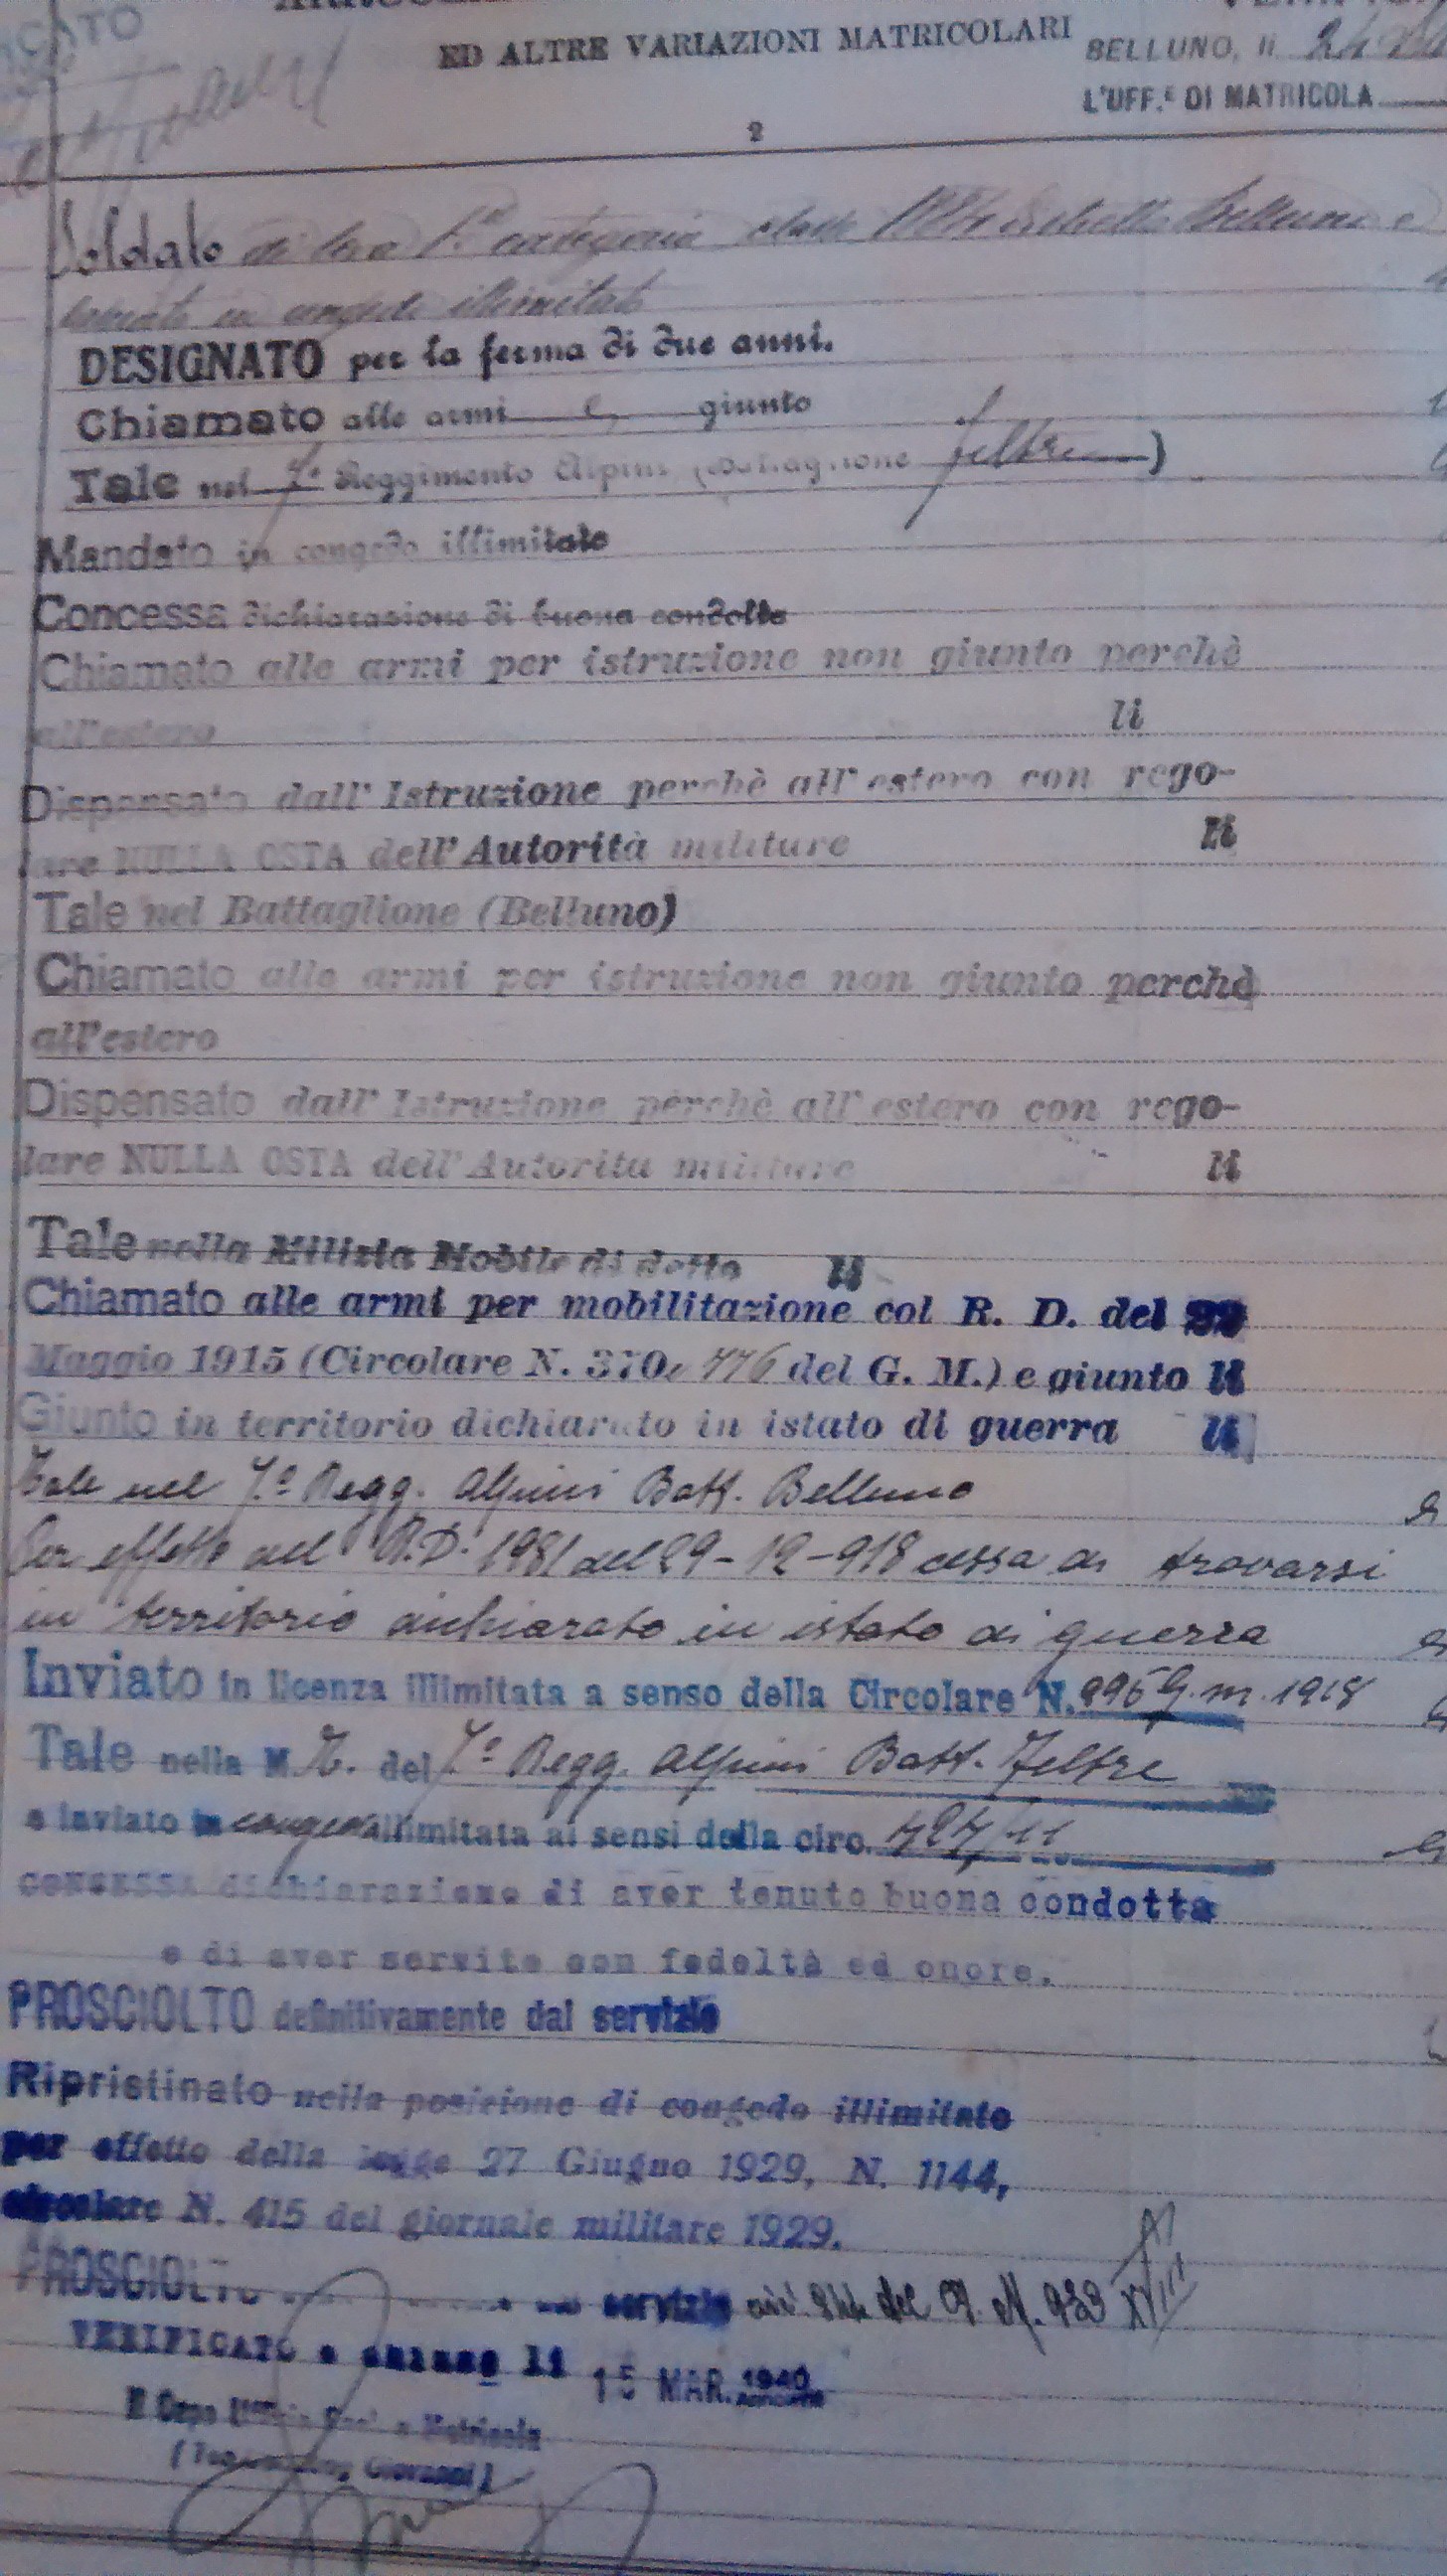 ED ALTRE VARIAZIONI MATRICOLARI
BELLUNO, li 24
L'UFF.e DI MATRICOLA
2
Soldato di leva 1a categoria classe distretto Belluno e
lasciato in congedo illimitato
DESIGNATO per la ferma di due anni.
Chiamato alle armi e giunto
Tale nel 7o Reggimento Alpini (Battaglione Feltre)
Mandato in congedo illimitato
Concessa dichiarazione di buona condotta
Chiamato alle armi per istruzione non giunto perchè
all'estero li
Dispensato dall'Istruzione perchè all'estero con rego-
lare NULLA OSTA dell'Autorità militare li
Tale nel Battaglione (Belluno)
Chiamato alle armi per istruzione non giunto perchè
all'estero
Dispensato dall'Istruzione perchè all'estero con rego-
lare NULLA OSTA dell'Autorità militare li
Tale nella Milizia Mobile di detto li
Chiamato alle armi per mobilitazione col R. D. del 22
Maggio 1915 (Circolare N. 370 e 776 del G. M.) e giunto li
Giunto in territorio dichiarato in istato di guerra li
Tale nel 7o Regg. Alpini Batt. Belluno
Per effetto del R.D. 1981 del 29-12-918 cessa di trovarsi
in territorio dichiarato in istato di guerra
Inviato in licenza illimitata a senso della Circolare N. G.M. 1918
Tale nella M. T. del 7o Regg. Alpini Batt. Feltre
e inviato in congedo illimitata ai sensi della circ.
concessa dichiarazione di aver tenuto buona condotta
e di aver servito con fedeltà ed onore.
PROSCIOLTO definitivamente dal servizio
Ripristinato nella posizione di congedo illimitato
per effetto della legge 27 Giugno 1929, N. 1144,
circolare N. 415 del giornale militare 1929.
PROSCIOLTO servizio del G. M. XVIII
VERIFICATO e chiuso li 15 MAR. 1940
Il Capo Matricola
Giovanni)